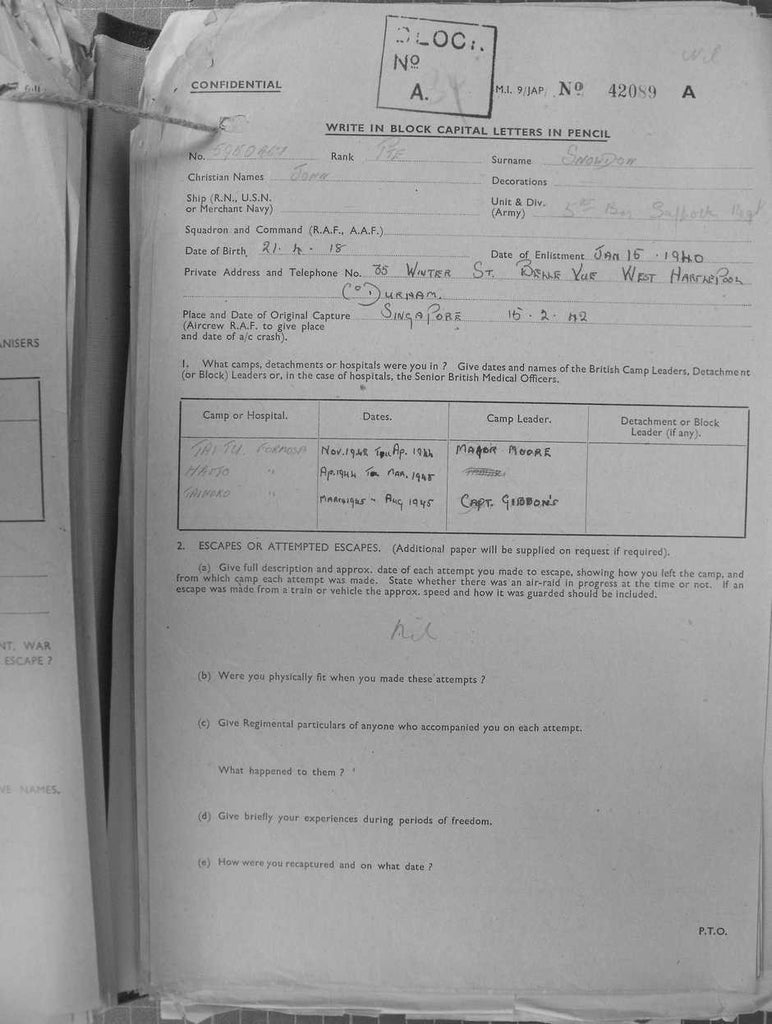 Nº
A.
CONFIDENTIAL
M.I. 9/JAP/ Nº 42089 A
WRITE IN BLOCK CAPITAL LETTERS IN PENCIL
No. Rank PTE Surname SNOWDON
Christian Names JOHN Decorations
Ship (R.N., U.S.N. or Merchant Navy) Unit & Div. (Army) 5TH Suffolk Regt
Squadron and Command (R.A.F., A.A.F.)
Date of Birth 21. 4. 18 Date of Enlistment JAN 15 . 1940
Private Address and Telephone No. 35 WINTER ST. BELLE VUE WEST HARTLEPOOL
Co DURHAM.
Place and Date of Original Capture SINGAPORE 15 . 2 . 42
(Aircrew R.A.F. to give place
and date of a/c crash).
NISERS
1. What camps, detachments or hospitals were you in ? Give dates and names of the British Camp Leaders, Detachment
(or Block) Leaders or, in the case of hospitals, the Senior British Medical Officers.
Camp or Hospital. Dates. Camp Leader. Detachment or Block
Leader (if any).
FORMOSA NOV. 1942 TOU AP. 1944 MAJOR MOORE
HAITO " AP. 1944 TOU MAR. 1945
" MARCH 1945 - AUG 1945 CAPT. GIBBON'S
2. ESCAPES OR ATTEMPTED ESCAPES. (Additional paper will be supplied on request if required).
(a) Give full description and approx. date of each attempt you made to escape, showing how you left the camp, and
from which camp each attempt was made. State whether there was an air-raid in progress at the time or not. If an
escape was made from a train or vehicle the approx. speed and how it was guarded should be included.
Nil
NT, WAR
ESCAPE ?
(b) Were you physically fit when you made these attempts ?
(c) Give Regimental particulars of anyone who accompanied you on each attempt.
What happened to them ?
VE NAMES.
(d) Give briefly your experiences during periods of freedom.
(e) How were you recaptured and on what date ?
P.T.O.